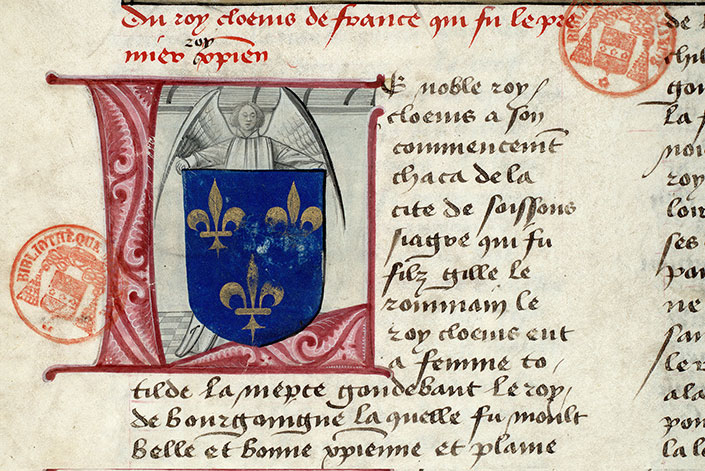 Du roy cloenis de france qui fu le pre
mier roy xpien
Le noble roy
cloenis a son
commencemt
chaca de la
cite de soissons
siagre qui fu
filz gille le
rommain le
roy cloenis eut
a femme to
tilde la niepce gondebaut le roy
de bourgoingne la quelle fu moult
belle et bonne xpienne et plaine
BIBLIOTHEQUA
de
chil
gon
la f
noi
roy
loi
ses
par
ne
san
le r
a la
pon
la l